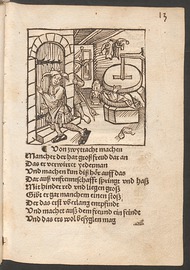 13
Von zwytracht machen
Mancher der hat groß freud dar an
Das er verwirret yederman
Und machen kun diß hor auff das
Dar auß unfrunschafft spring und haß
Mit hinder red und liegen groß
Gibt er gar manchem einen stoß
Der das erst uber lang empfindt
Und macht auß dem freund ein findt
Und das ers wol besyglen mag